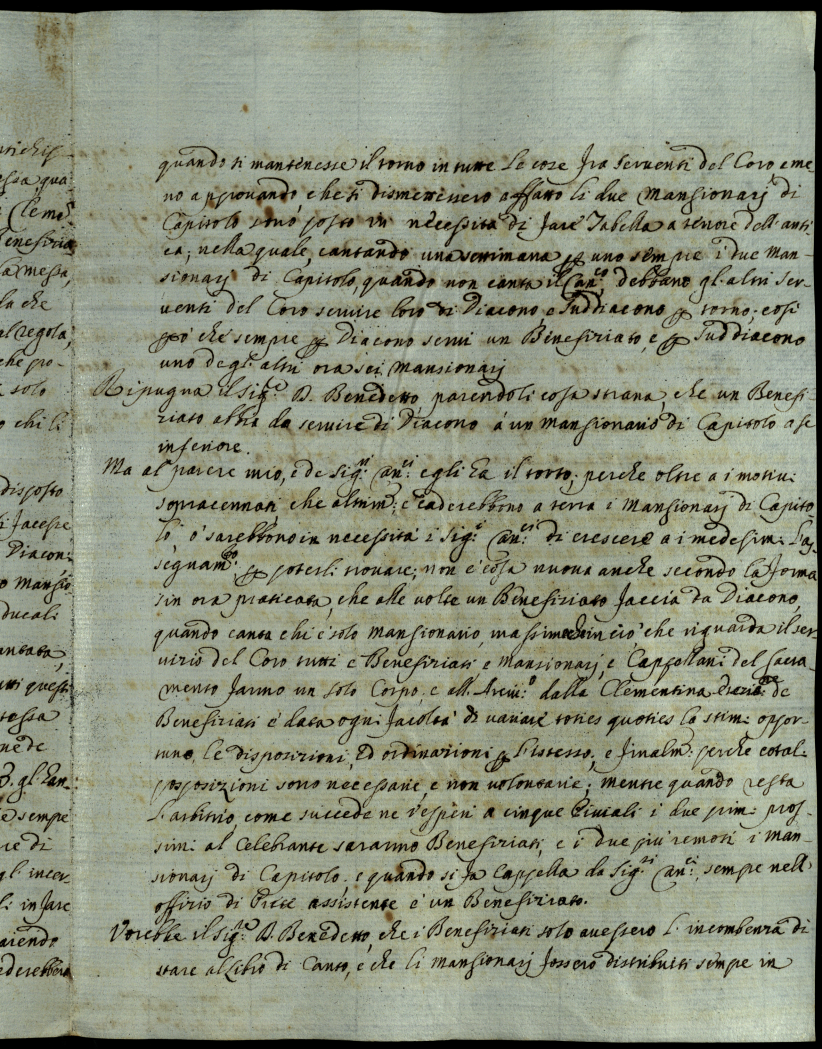 quando si mantenesse il torno in tutte le cose fra serventi del Coro, e me
no approvando, che si dismettessero affatto li due Mansionarj di
Capitolo sono posto in necessità di fare Tabella a tenore dell'anti
ca; nella quale, cantando una settimana per uno sempre i due Man-
sionarj di Capitolo, quando non canta il Can.co debbano gl'altri ser-
venti del Coro servire loro di Diacono e Suddiacono per torno; così
però che sempre per Diacono servi un Benefiziato, e per Suddiacono
uno degl'altri ora sei Mansionarj
Ripugna il Sig.re D. Benedetto parendoli cosa strana, che un Benefi-
ziato abbia da servire di Diacono à un Mansionario di Capitolo a se
inferiore.
Ma al parere mio, e de Sig.ri Can.ci egli ha il torto; perche oltre a i motivi
sopracennati che altrim: caderebbono a terra i Mansionarj di Capito-
lo, o sarebbono in necessità i Sig.ri Can.ci di crescere a i medesimi l'as-
segnam.to per poterli trovare; non è cosa nuova anche secondo la forma
sin ora praticata, che alle volte un Benefiziato faccia da Diacono,
quando canta chi è solo Mansionario, massime che in ciò che riguarda il ser-
vizio del Coro tutti e Benefiziati, e Mansionarj, e Cappellani del Sacra-
mento fanno un solo Corpo, e all' dalla Clementina de
Benefiziati è data ogni facoltà di variare toties quoties lo stimi oppor-
tuno, le disposizioni, ed ordinazioni per l'istesso; e finalm: perche cotali
posposizioni sono necessarie, e non volontarie; mentre quando resta
l'arbitrio come succede ne Vesperi a cinque Piviali i due primi pros-
simi al Celebrante saranno Benefiziati, e i due più remoti i Man-
sionarj di Capitolo. e quando si fa Cappella da Sig.ri Can.ci, sempre nell'
offizio di Prete assistente è un Benefiziato.
Vorebbe il Sig.re D. Benedetto, che i Benefiziati solo avessero l'incombenza di
stare al Libro di Canto, e che li Mansionarj fossero distribuiti sempre in